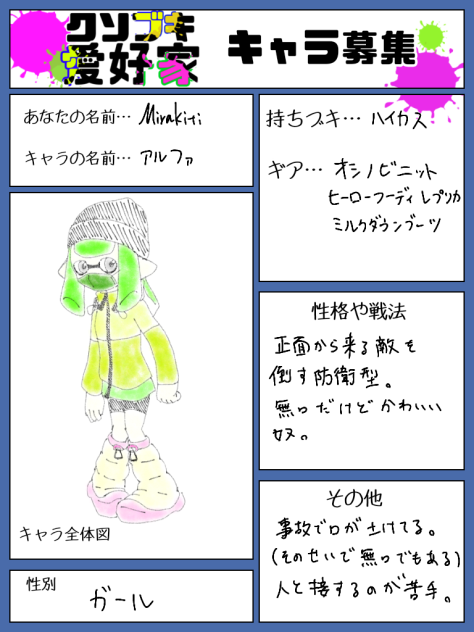 クソブキ
愛好家
キャラ募集
あなたの名前… Mirakiti
キャラの名前… アルファ
持ちブキ… ハイカス
ギア… オシノビニット
ヒーローフーディレプリカ
ミルクダウンブーツ
性格や戦法
正面から来る敵を
倒す防衛型。
無口だけどかわいい
奴。
キャラ全体図
性別
ガール
その他
事故で口が土けてる。
(そのせいで無口でもある)
人と接するのが苦手。